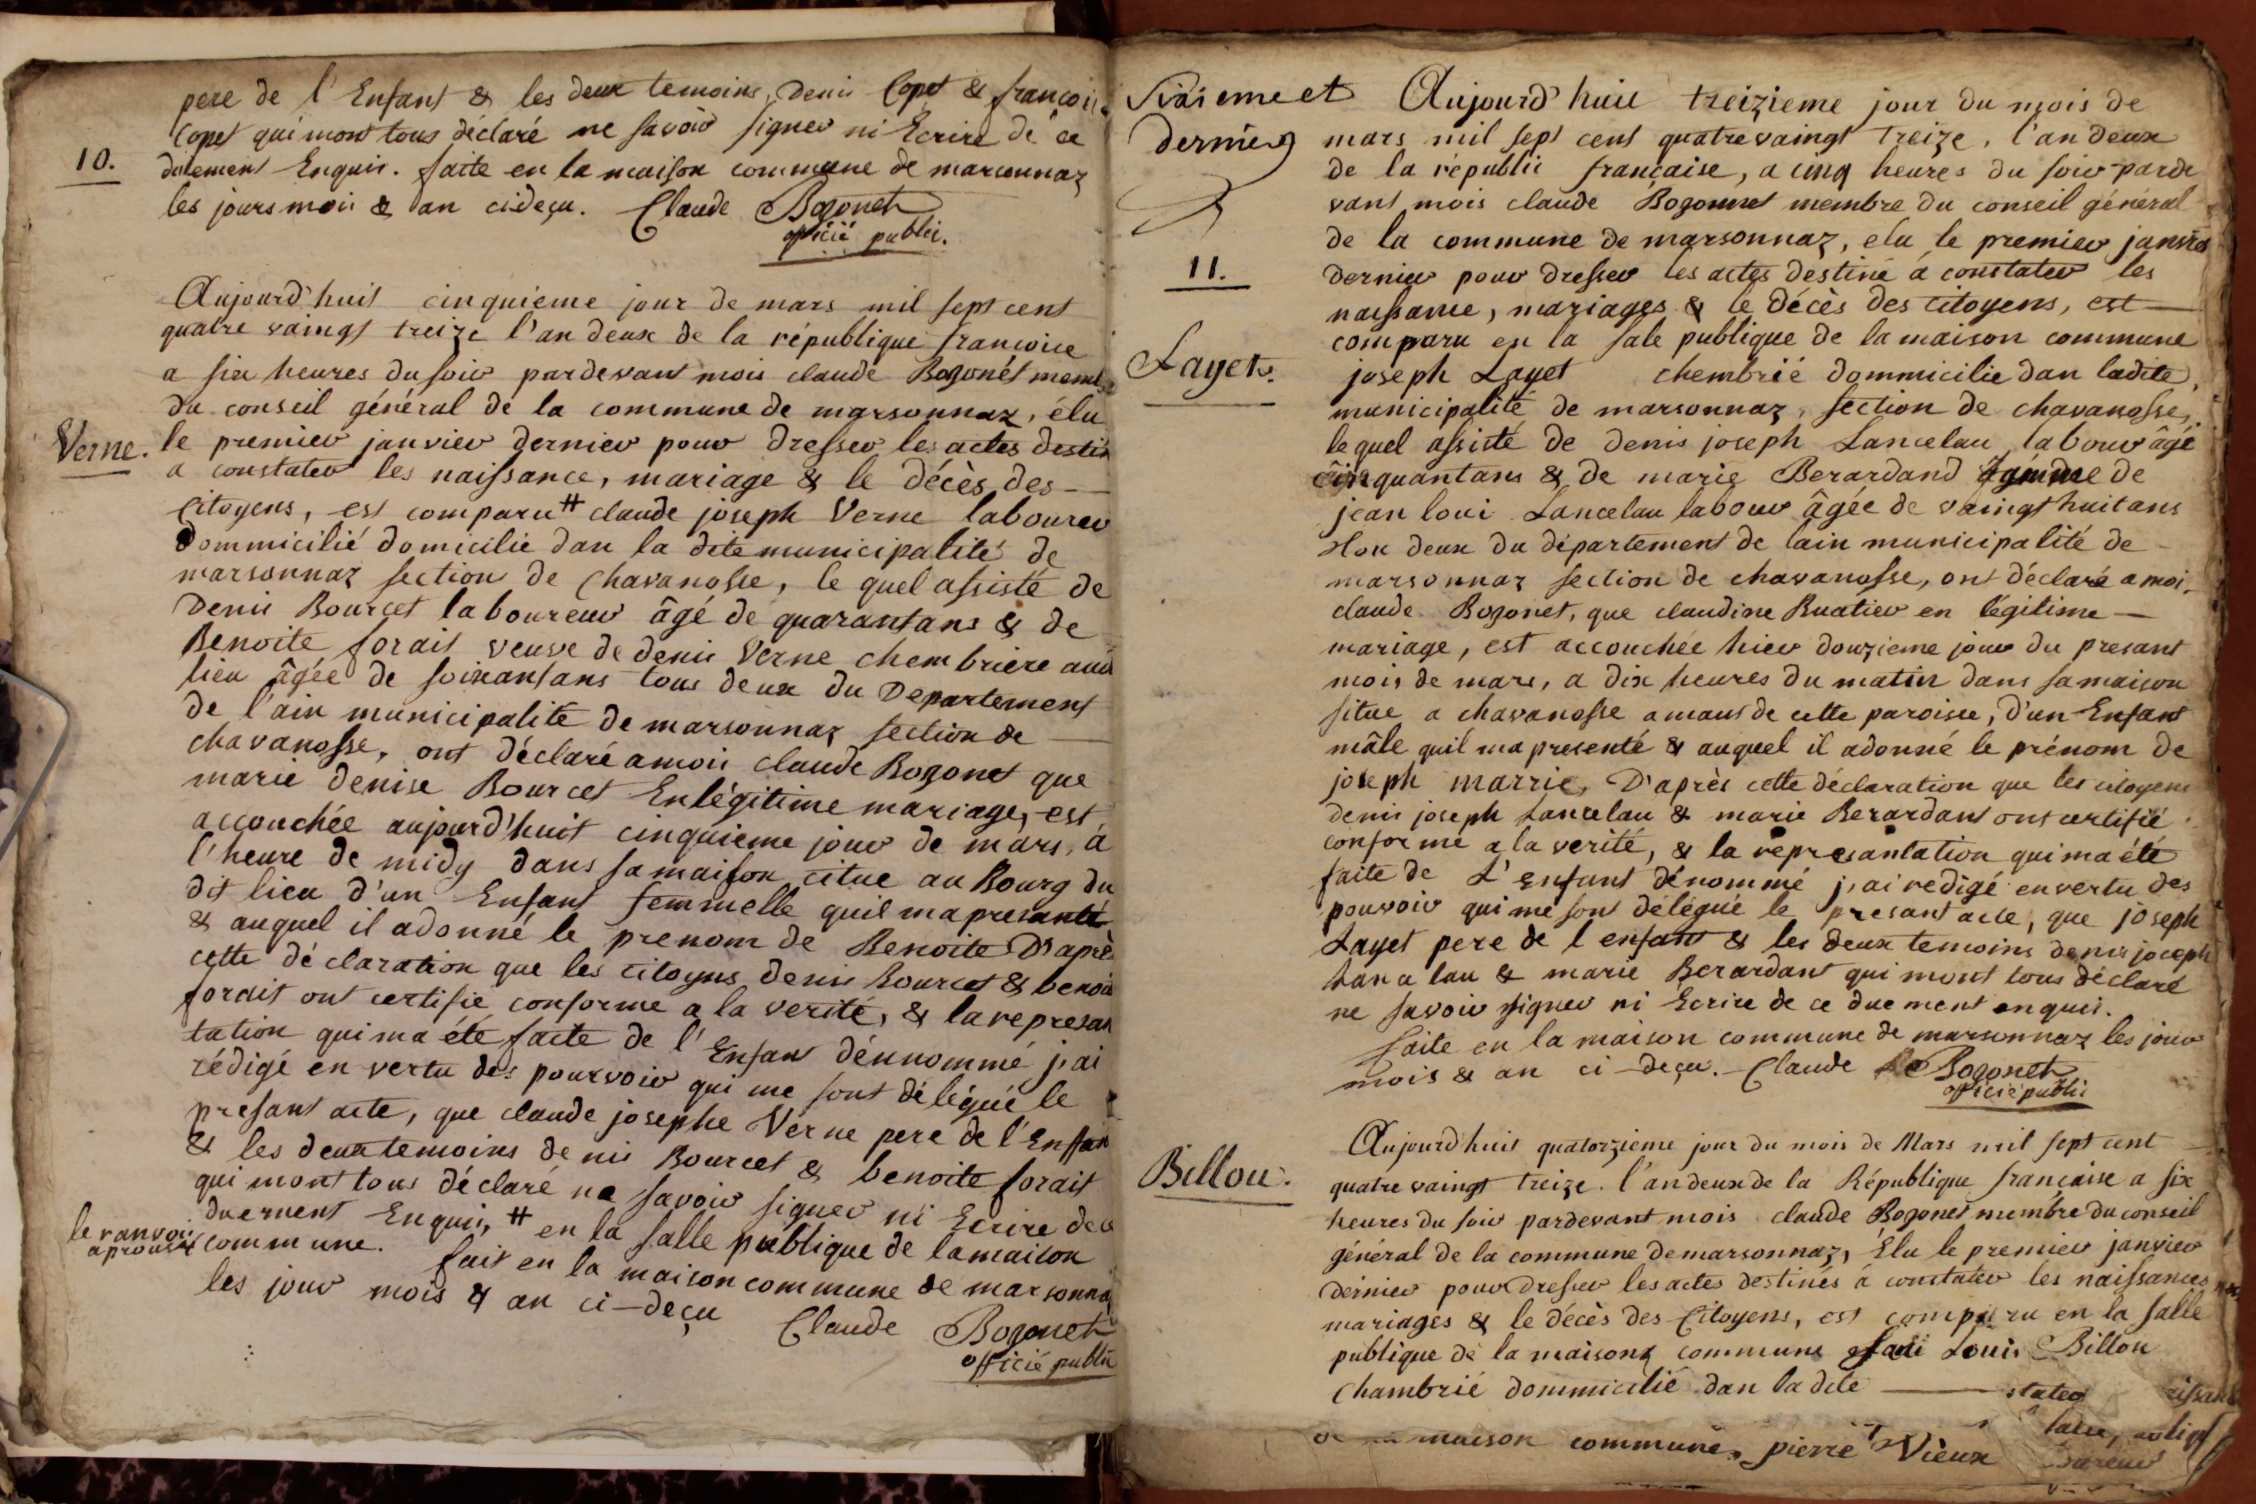 pere de l'Enfant & les deux temoins, Denis Copet & francois
Copet qui mont tous déclaré ne savoir signer ni Ecrire de ce
10.
duement Enquis. faite en la maison commune de marsonnaz
les jours mois & dan cideçu. Claude Bozonet
officié public.
Aujourd'huit cinquieme jour de mars mil sept cent
quatre vaingt treize l'an deux de la république francoise
a six heures du soir pardevant mois claude Bozonet mem
du conseil général de la commune de marsonnaz, élu
Verne.
le premier janvier dernier pour dresser les actes destin
a constater les naissance, mariage & le décès des
Citoyens, est comparu # claude joseph Verne laboureur
dommicilié domicilie dan la dite municipalité de
marsonnaz section de Chavanosse, le quel assisté de
Denis Bourcet laboureur âgé de quarantans & de
Benoite forait veuve de denis Verne chembriere aud
lieu âgée de soixantans tous deux du Departement
de l'ain municipalité de marsonnaz section de
chavanosse, ont déclaré amoii claude Bozonet que
marie denise Bourcet Enlégitime mariage, est
accouchée aujourd'huit cinquieme jour de mars, à
l'heure de midy dans sa maison, citue au Bourg du
dit lieu d'un Enfant femmelle quil ma presanté
& auquel il adonné le prenom de Benoite D'après
cette déclaration que les citoyens denis Bourcet & benoit
forait ont certifie conforme a la verité, & la represan
tation qui ma été faite de l'Enfant dénnommé j'ai
rédigé en vertu des pourvoir qui me sont délégué le
presant acte, que claude josephe Verne pere de l'Enffan
& les deux temoins denis Bourcet & benoite forait
qui mont tous déclaré ne savoir signer ni Ecrire de ce
duement Enquis, # en la salle publique de la maison
le ranvoi
aprouvé
commune. fait en la maison commune de marsonna
les jour mois & an ci-deçu
Claude Bozonet
officié public
Sixieme et
dernier
11.
Layet.
Aujourd'huit treizieme jour du mois de
mars mil sept cent quatre vaingt treize, l'an deux
de la républic française, a cinq heures du soir parde
vant mois claude Bozonnet membre du conseil général
de la commune de marsonnaz, elu le premier janvier
dernier pour dresser les actes destiné à constater les
naissance, mariages & le décès des citoyens, est
comparu en la sale publique de la maison commune
joseph Layet chembrié dommicilie dan ladite
municipalité de marsonnaz, section de chavanosse,
le quel assisté de denis joseph Lancelau labour âgé
cinquantans & de marie Berardand femme de
jean loui Lancelau labour âgée de vaingt huit ans
tlou deux du département de lain municipalité de
marsonnaz section de chavanosse, ont déclaré amoi,
claude Bozonet, que claudine Buatier en légitime
mariage, est accouchée hier douzieme jour du presant
mois de mars, a dix heures du matin dans sa maison
situe a chavanosse amant de cette paroisse, d'un Enfant
mâle quil ma presenté & auquel il adonné le prénom de
joseph marrie, D'après cette déclaration que les citoyens
denis joseph Lancelau & marie Berardant ont certifié
conforme a la verité, & la represantation qui ma été
faite de L'enfant dénommé j'ai redigé en vertu des
pouvoir qui me sont délégué le presant acte, que joseph
Layet pere de l enfant & les deux temoins denis joceph
Lanalau & marie Berardant qui mont tous déclaré
ne savoir signer ni Ecrire de ce duement enquis.
faite en la maison commune de marsonnaz les jour
mois & an ci-deçu. Claude Bozonet
officié public
Billou.
Aujourd'huit quatorzieme jour du mois de Mars mil sept cent
quatre vaingt treize. l'an deux de la République française a six
heures du soir pardevant mois claude Bozonet membre du conseil
général de la commune de marsonnaz, Élu le premier janvier
dernier pour dresser les actes destinés à constater les naissances
mariages & le décès des Citoyens, est comparu en la salle
publique de la maisonz commune Louis Billou
chambrié dommicilié dan la dite
maison commune, pierre Vieux